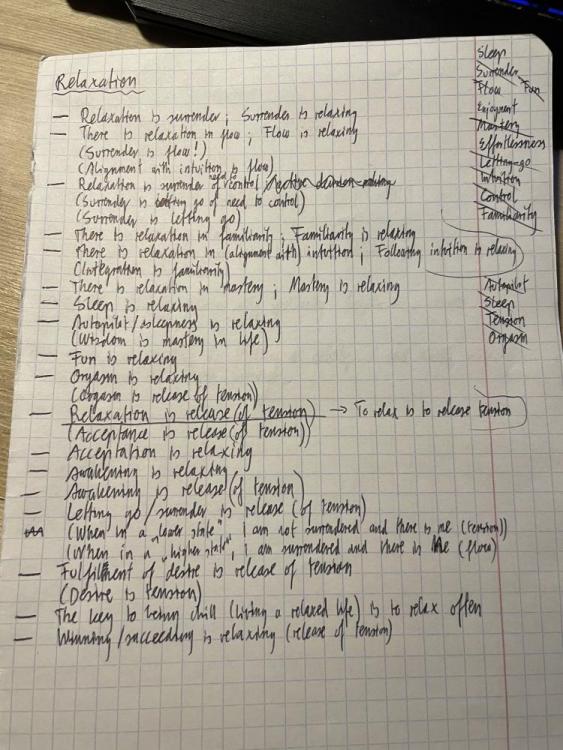 Relaxation
— Relaxation is surrender; Surrender is relaxing
— There is relaxation in flow; Flow is relaxing
(Surrender is flow!)
(Alignment with intuition is flow)
— Relaxation is surrender of need control
(Surrender is letting go of need to control)
(Surrender is letting go)
— There is relaxation in familiarity; Familiarity is relaxing
— There is relaxation in (alignment with) intuition; Following intuition is relaxing
(Integration is familiarity)
— There is relaxation in mastery; Mastery is relaxing
— Sleep is relaxing
— Autopilot/asleepness is relaxing
(Wisdom is mastery in life)
— Fun is relaxing
— Orgasm is relaxing
(Orgasm is release of tension)
— Relaxation is release (of tension) → To relax is to release tension
(Acceptance is release (of tension))
— Acceptation is relaxing
— Awakening is relaxing
— Awakening is release (of tension)
— Letting go/surrender is release (of tension)
(When in a "lower state", I am not surrendered and there is me (tension))
(When in a "higher state", I am surrendered and there is Me (flow)
— Fulfilment of desire is release of tension
(Desire is tension)
— The key to being chill (living a relaxed life) is to relax often
— Winning/succeeding is relaxing (release of tension)
Sleep
Surrender
Flow Fun
Enjoyment
Mastery
Effortlessness
Letting-go
Intuition
Control
Familiarity
Autopilot
Sleep
Tension
Orgasm